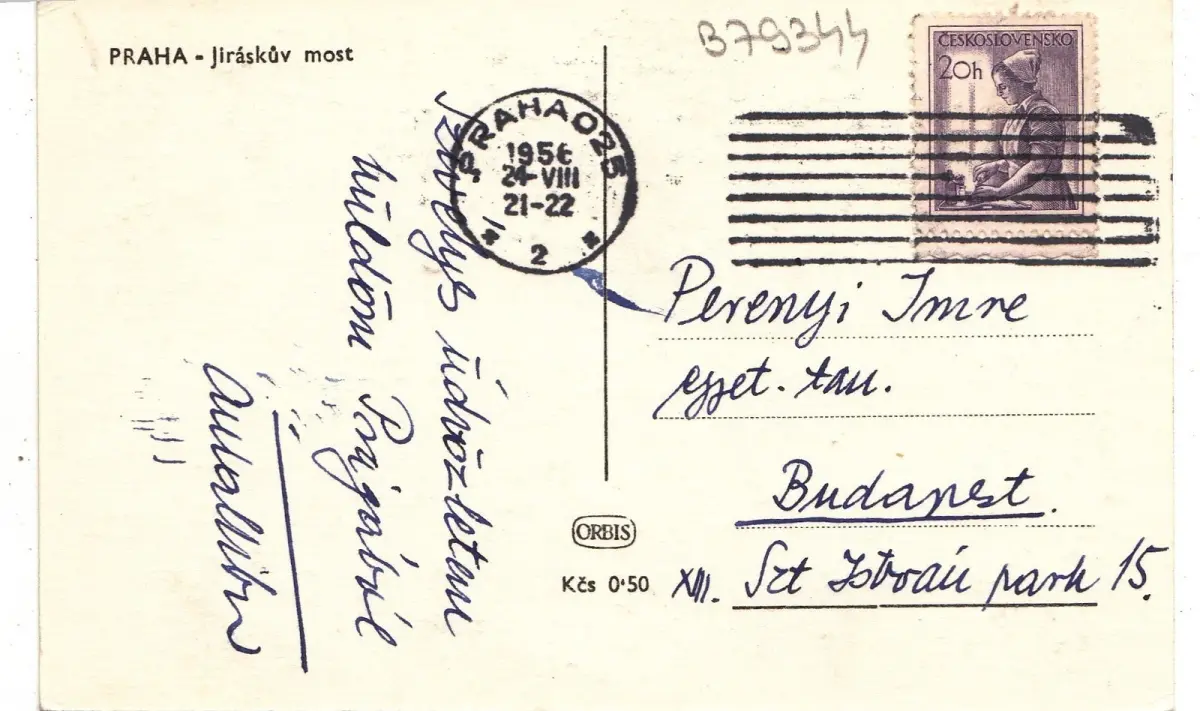 PRAHA - Jiráskův most
B79344
ČESKOSLOVENSKO
20h
PRAHA 025
1956
24-VIII
21-22
2
Szívélyes üdvözletem
küldöm Prágából
Perenyi Imre
egyet. tan.
Budapest.
XIII. Szt István park 15.
ORBIS
Kčs 0·50